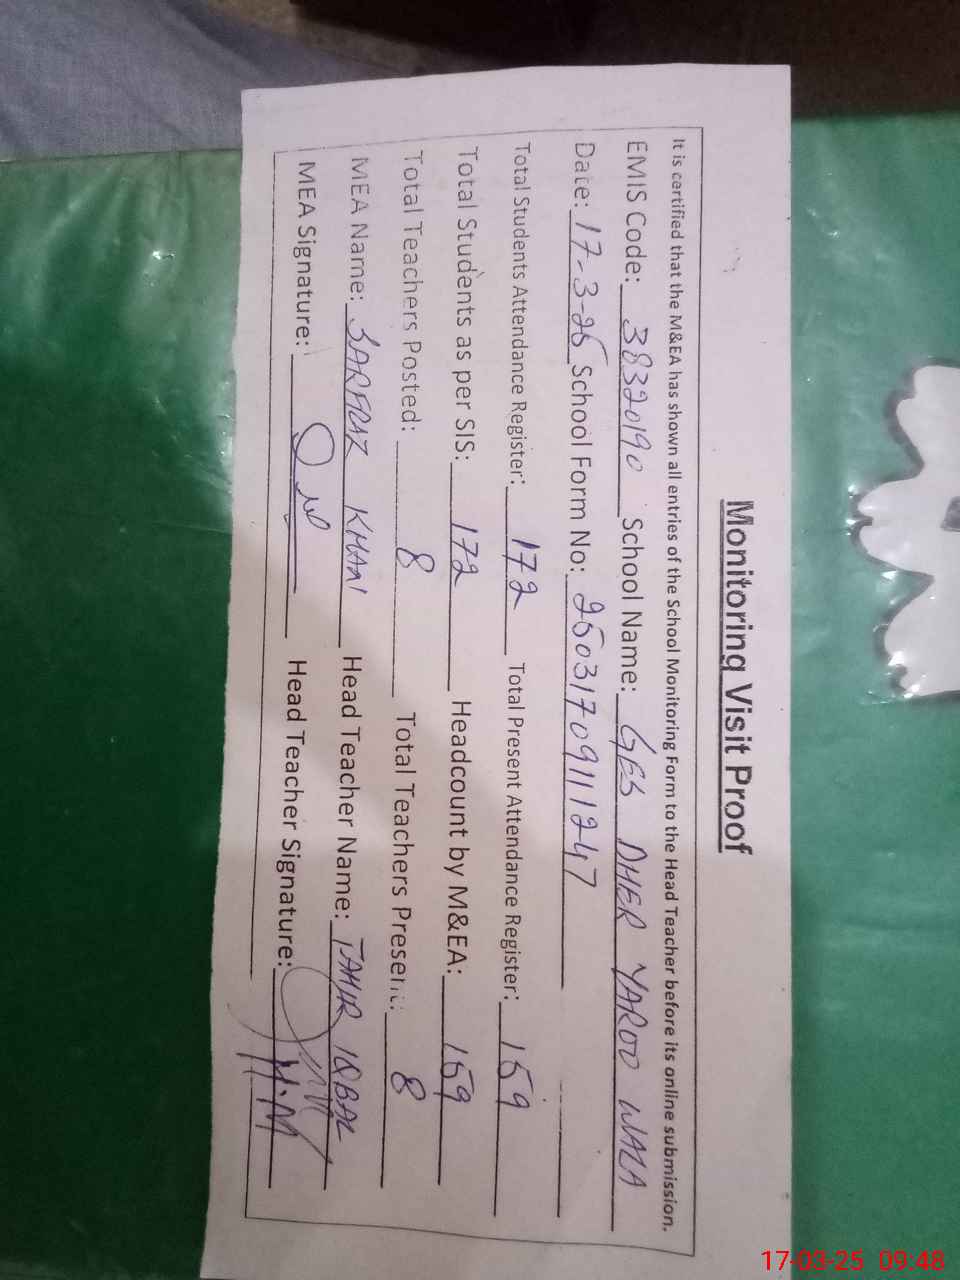 Monitoring Visit Proof
It is certified that the M&EA has shown all entries of the School Monitoring Form to the Head Teacher before its online submission.
EMIS Code: 38320190 School Name: GES DHER YAROO WALA
Date: 17-3-25 School Form No: 250317091111247
Total Students Attendance Register: 172 Total Present Attendance Register: 159
Total Students as per SIS: 172 Headcount by M&EA: 159
Total Teachers Posted: 8 Total Teachers Present: 8
MEA Name: SARFRAZ KHAN Head Teacher Name: TAHIR IQBAL
MEA Signature: Head Teacher Signature: H.M
17-03-25 09:48